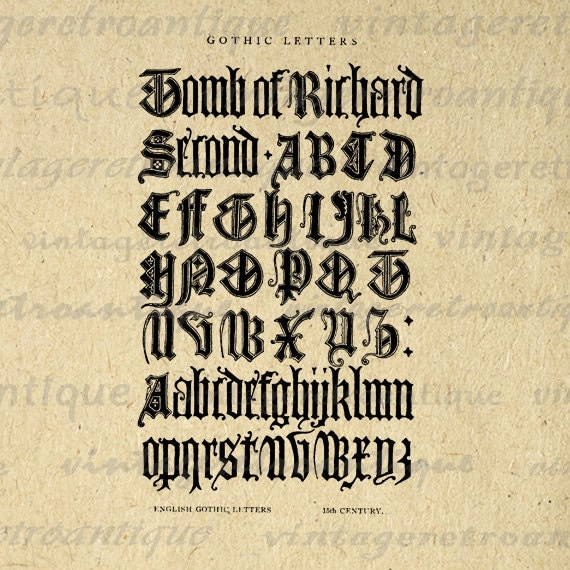 GOTHIC LETTERS
Tomb of Richard
Second · A B C D
E F G H I J K L
M N O P Q R T
U V W X Y Z :
A a b c d e f g h i j k l m n
o p q r s t u v w x y z
ENGLISH GOTHIC LETTERS 15th CENTURY.
vintageretroantique